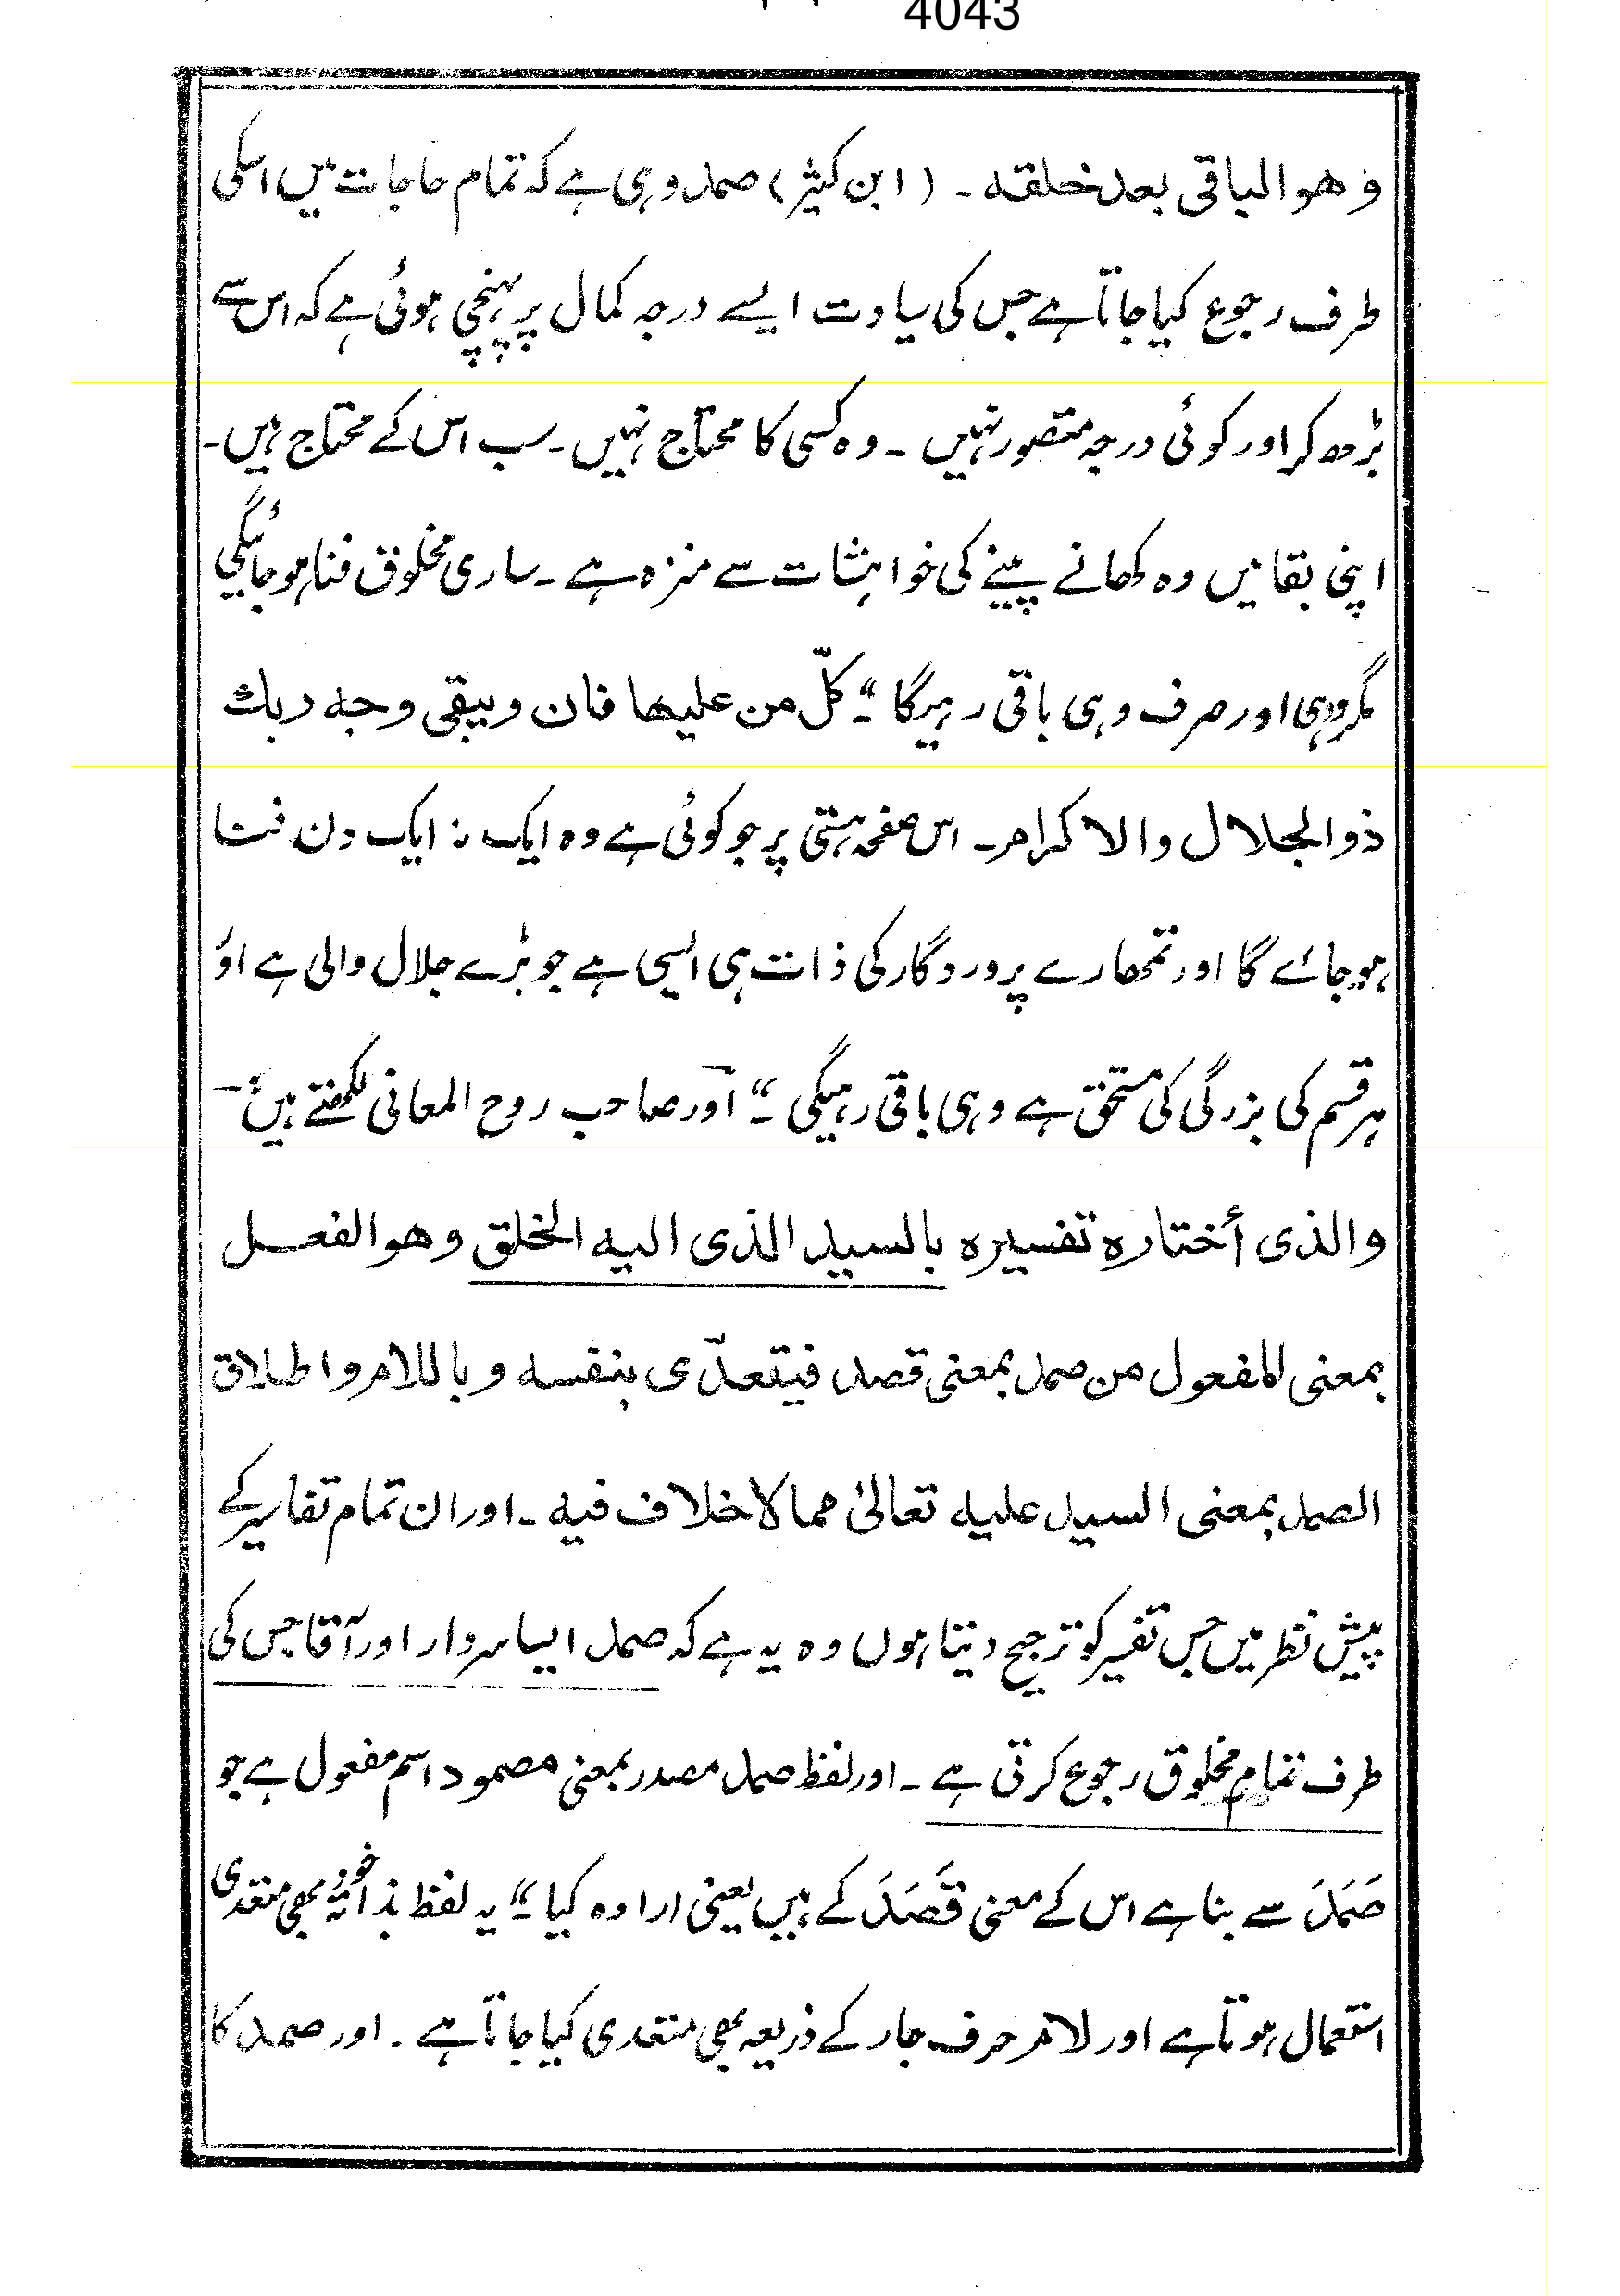 4043
وهو الباقی بعد خلقه ۔ (ابن کثیر) صمد وہی ہے کہ تمام حاجات میں اسکی
طرف رجوع کیا جاتا ہے جس کی سیادت ایسے درجہ کمال پر پہنچی ہوئی ہے کہ اس سے
بڑھ کر اور کوئی درجہ متصور نہیں ۔ وہ کسی کا محتاج نہیں ۔ سب اس کے محتاج ہیں۔
اپنی بقا میں وہ کھانے پینے کی خواہشات سے منزہ ہے ۔ ساری مخلوق فنا ہو جائیگی
مگر وہی اور صرف وہی باقی رہیگا ۔“ کلّ من علیها فان ویبقی وجه ربك
ذوالجلال والاکرام۔ اس صفحہ ہستی پر جو کوئی ہے وہ ایک نہ ایک دن فنا
ہوجائے گا اور تمھارے پروردگار کی ذات ہی ایسی ہے جو بڑے جلال والی ہے اور
ہر قسم کی بزرگی کی مستحق ہے وہی باقی رہیگی ۔“ اور صاحب روح المعانی لکھتے ہیں:۔
والذی أختاره تفسیره بالسید الذی الیه الخلق وهو الفعل
بمعنی المفعول من صمد بمعنی قصد فیتعدّی بنفسه وباللام واطلاق
الصمد بمعنی السید علیه تعالیٰ مما لا خلاف فیه ۔ اور ان تمام تفاسیر کے
پیش نظر میں جس تفسیر کو ترجیح دیتا ہوں وہ یہ ہے کہ صمد ایسا سردار اور آقا جس کی
طرف تمام مخلوق رجوع کرتی ہے ۔ اور لفظ صمد مصدر بمعنی مصمود اسم مفعول ہے جو
صَمَدَ سے بنا ہے اس کے معنی قَصَدَ کے ہیں یعنی ارادہ کیا ۔“ یہ لفظ بذاتہ خود بھی متعدی
استعمال ہوتا ہے اور لام حرف جار کے ذریعہ بھی متعدی کیا جاتا ہے ۔ اور صمد کا